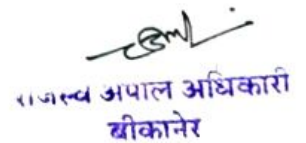 राजस्व अपाल अधिकारी
बीकानेर